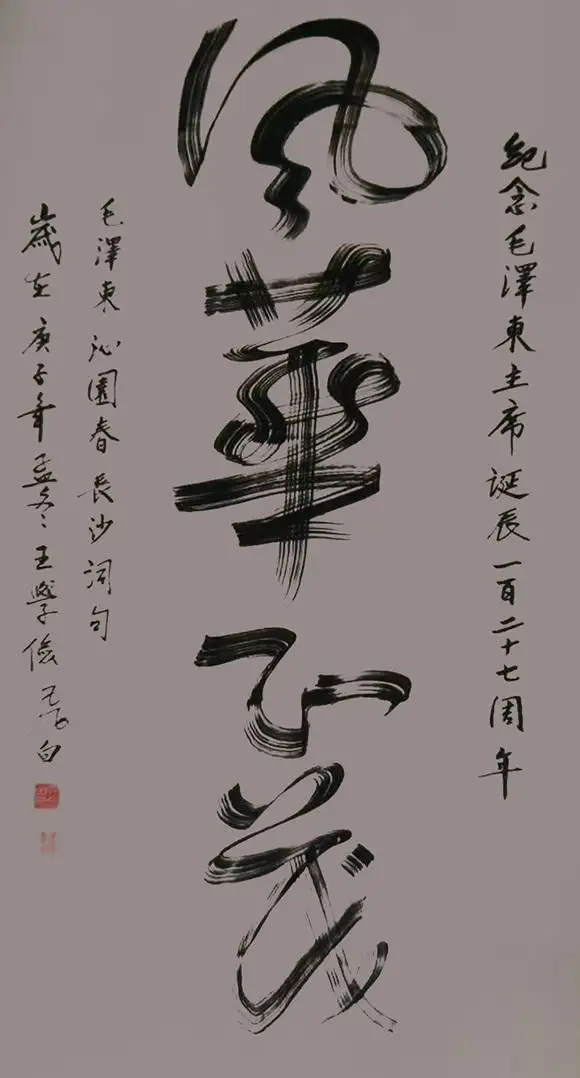 紀念毛澤東主席誕辰一百二十七周年
風華正茂
毛澤東沁園春長沙詞句
歲在庚子年孟冬王學儉